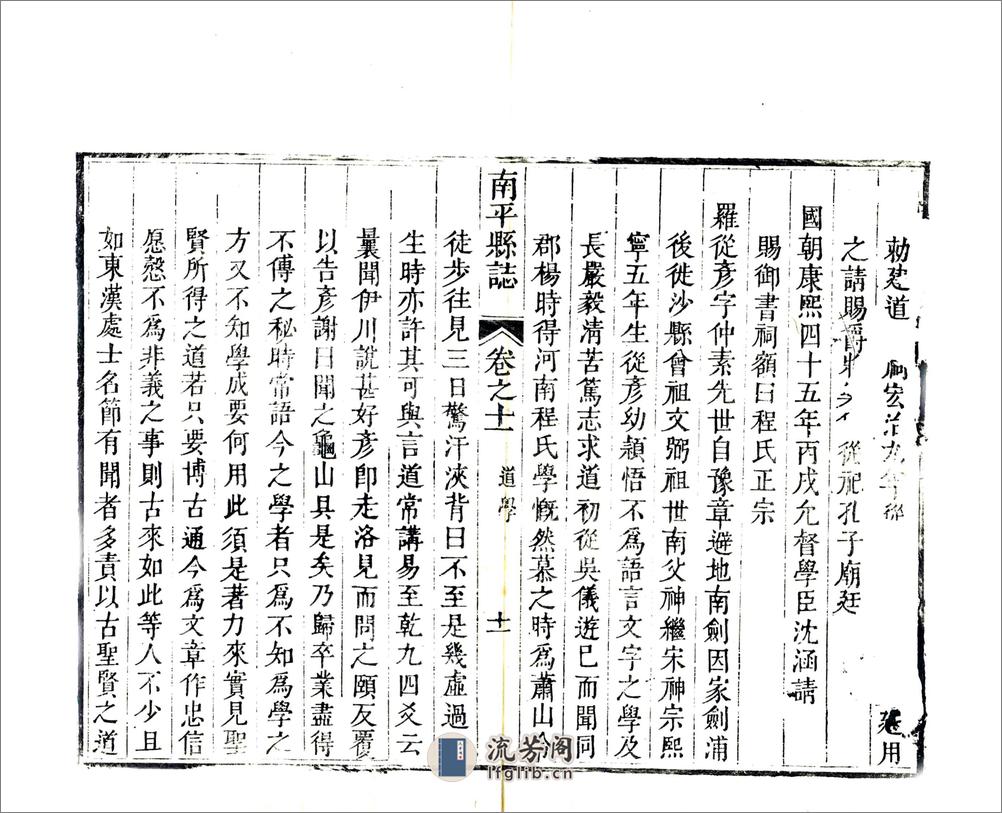 勅建道　宏治九年　廷用
之請賜爵　從祀孔子廟廷
國朝康熙四十五年丙戌允督學臣沈涵請
賜御書祠額曰程氏正宗
羅從彥字仲素先世自豫章避地南劍因家劍浦
後徙沙縣曾祖文弼祖世南父神繼宋神宗熙
寧五年生從彥幼頴悟不為語言文字之學及
長嚴毅清苦篤志求道初從吳儀遊已而聞同
郡楊時得河南程氏學慨然慕之時為蕭山令
南平縣誌
卷之十一
道學
十一
徒步往見三日驚汗浹背曰不至是幾虛過一
生時亦許其可與言道常講易至乾九四爻云
曩聞伊川說甚好彥卽走洛見而問之頤反覆
以告彥謝曰聞之龜山具是矣乃歸卒業盡得
不傳之秘時常語今之學者只為不知為學之
方又不知學成要何用此須是著力來實見聖
賢所得之道若只要博古通今為文章作忠信
愿慤不為非義之事則古來如此等人不少且
如東漢處士名節有聞者多責以古聖賢之道
流芳阁
lfglib.cn